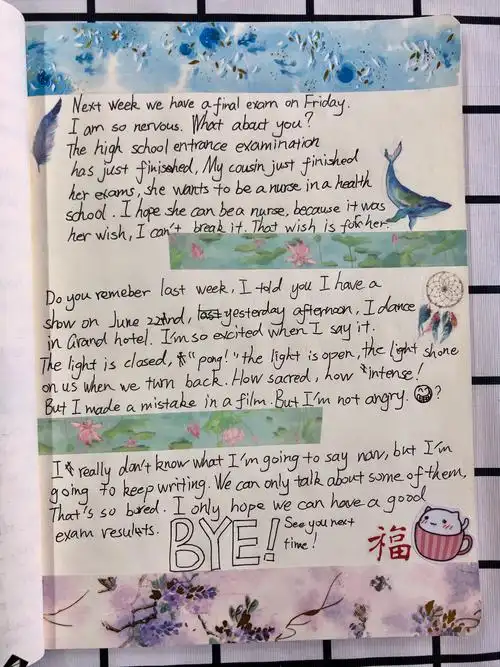 Next week we have a final exam on Friday.
I am so nervous. What about you?
The high school entrance examination
has just finished, My cousin just finished
her exams, she wants to be a nurse in a health
school. I hope she can be a nurse, because it was
her wish, I can't break it. That wish is for her.
Do you remeber last week, I told you I have a
show on June 22nd, last yesterday afternoon, I dance
in Grand hotel. I'm so excited when I say it.
The light is closed, "pong!" the light is open, the light shone
on us when we turn back. How sacred, how intense!
But I made a mistake in a film. But I'm not angry. ?
I really don't know what I'm going to say now, but I'm
going to keep writing. We can only talk about some of them,
That's so bored. I only hope we can have a good
exam results. BYE! See you next
time!
福